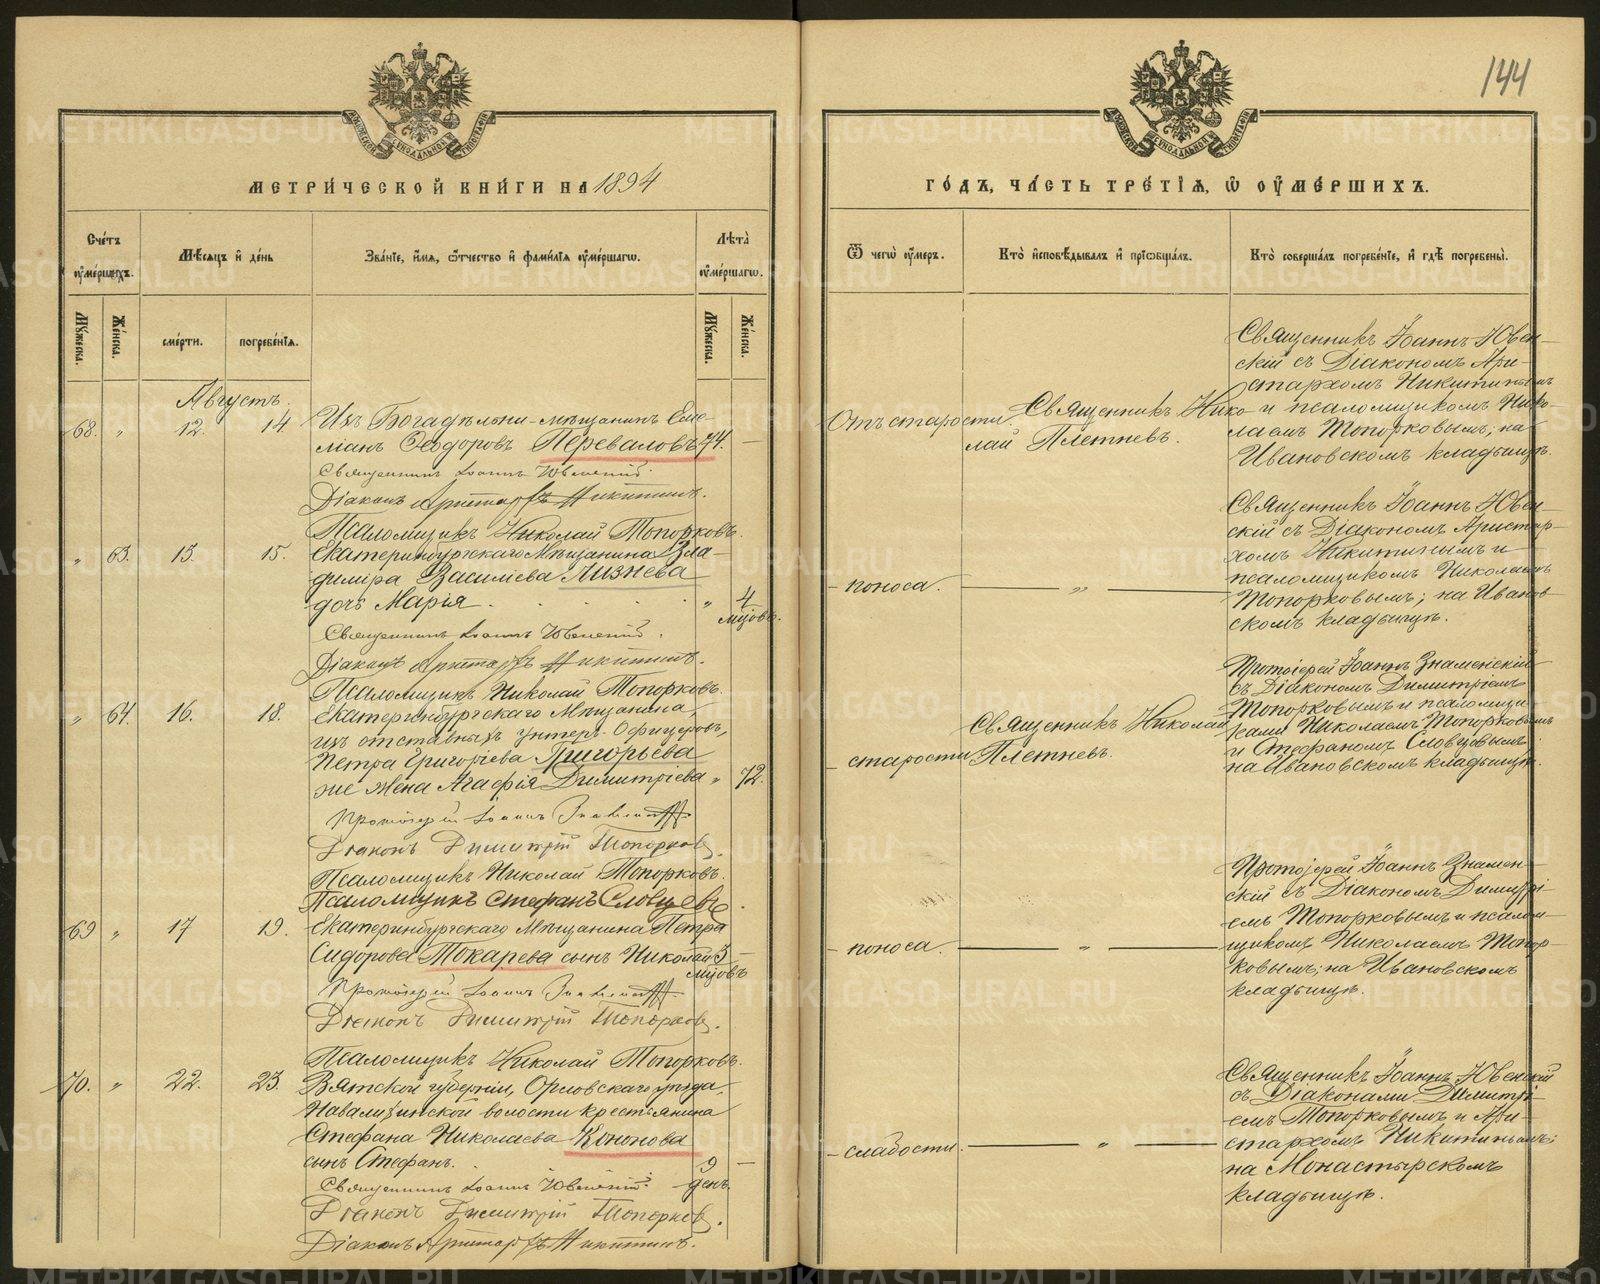 144
МЕТРИЧЕСКОЙ КНИГИ НА 1894
Счетъ умершихъ.
Мѣсяцъ и день
Званіе, имя, отчество и фамилія умершагѡ.
Лѣта умершагѡ.
Мужеска.
Женска.
смерти.
погребенія.
Мужеска.
Женска.
Августъ.
68. „ 12. 14
Изъ Богадѣльни мѣщанинъ Еме-
ліанъ Ѳеодоровъ Переваловъ 74. —
Священникъ Іоаннъ Ювенскій.
Діаконъ Аристархъ Никитинъ.
Псаломщикъ Николай Топорковъ.
„ 63. 13. 15.
Екатеринбургскаго Мѣщанина Вла-
димира Василіева Лизнева
дочь Марія . . . . „ 4 мѣсѣцовъ.
Священникъ Іоаннъ Ювенскій.
Діаконъ Аристархъ Никитинъ.
Псаломщикъ Николай Топорковъ.
„ 64. 16. 18.
Екатеринбургскаго Мѣщанина,
изъ отставныхъ унтеръ-Офицеровъ,
Петра Григоріева Григорьева
жена Агафія Димитріева „ 72.
Протоіерей Іоаннъ Знаменскій
Діаконъ Димитрій Топорковъ.
Псаломщикъ Николай Топорковъ.
Псаломщикъ Стефанъ Словцовъ.
69 „ 17 19.
Екатеринбургскаго Мѣщанина Петра
Сидорова Токарева сынъ Николай 3 мѣсѣцовъ —
Протоіерей Іоаннъ Знаменскій
Діаконъ Димитрій Топорковъ.
Псаломщикъ Николай Топорковъ.
70. „ 22. 23.
Вятской губерніи, Орловскаго уѣзда,
волости крестьянина
Стефана Николаева Кононова
сынъ Стефанъ. 9 день. —
Священникъ Іоаннъ Ювенскій.
Діаконъ Димитрій Топорковъ.
Діаконъ Аристархъ Никитинъ.
ГОДЪ, ЧАСТЬ ТРЕТІЯ, Ѡ УМЕРШИХЪ.
Ѿ чегѡ умеръ.
Кто исповѣдывалъ и пріѡбщалъ.
Кто совершалъ погребеніе, и гдѣ погребены.
Отъ старости
Священникъ Нико-
лай Плетневъ.
Священникъ Іоаннъ Ювен-
скій съ Діакономъ Ари-
стархомъ Никитинымъ
и псаломщикомъ Нико-
лаемъ Топорковымъ; на
Ивановскомъ кладбищѣ.
— поноса. — „ —
Священникъ Іоаннъ Ювен-
скій съ Діакономъ Аристар-
хомъ Никитинымъ и
псаломщикомъ Николаемъ
Топорковымъ; на Иванов-
скомъ кладбищѣ.
— старости
Священникъ Николай
Плетневъ.
Протоіерей Іоаннъ Знаменскій
съ Діакономъ Димитріемъ
Топорковымъ и псаломщи-
ками Николаемъ Топорковымъ
и Стефаномъ Словцовымъ;
на Ивановскомъ кладбищѣ.
— поноса. — „ —
Протоіерей Іоаннъ Знамен-
скій съ Діакономъ Димитрі-
емъ Топорковымъ и псалом-
щикомъ Николаемъ Топор-
ковымъ; на Ивановскомъ
кладбищѣ.
— слабости. — „ —
Священникъ Іоаннъ Ювенскій
съ Діаконами Димитрі-
емъ Топорковымъ и Ари-
стархомъ Никитинымъ;
на Монастырскомъ
кладбищѣ.
METRIKI.GASO-URAL.RU